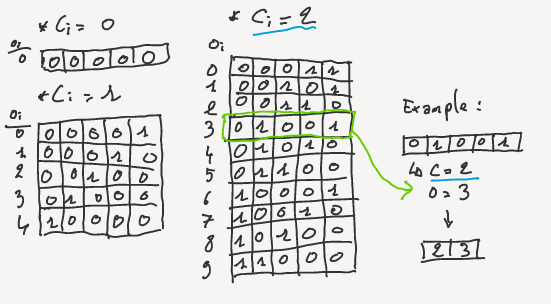 * Ci = 0
Oi
0 0 0 0 0 0
* Ci = 1
Oi
0 0 0 0 0 1
1 0 0 0 1 0
2 0 0 1 0 0
3 0 1 0 0 0
4 1 0 0 0 0
* Ci = 2
Oi
0 0 0 0 1 1
1 0 0 1 0 1
2 0 0 1 1 0
3 0 1 0 0 1
4 0 1 0 1 0
5 0 1 1 0 0
6 1 0 0 0 1
7 1 0 0 1 0
8 1 0 1 0 0
9 1 1 0 0 0
Example:
0 1 0 0 1
↳ C = 2
O = 3
↓
2 3